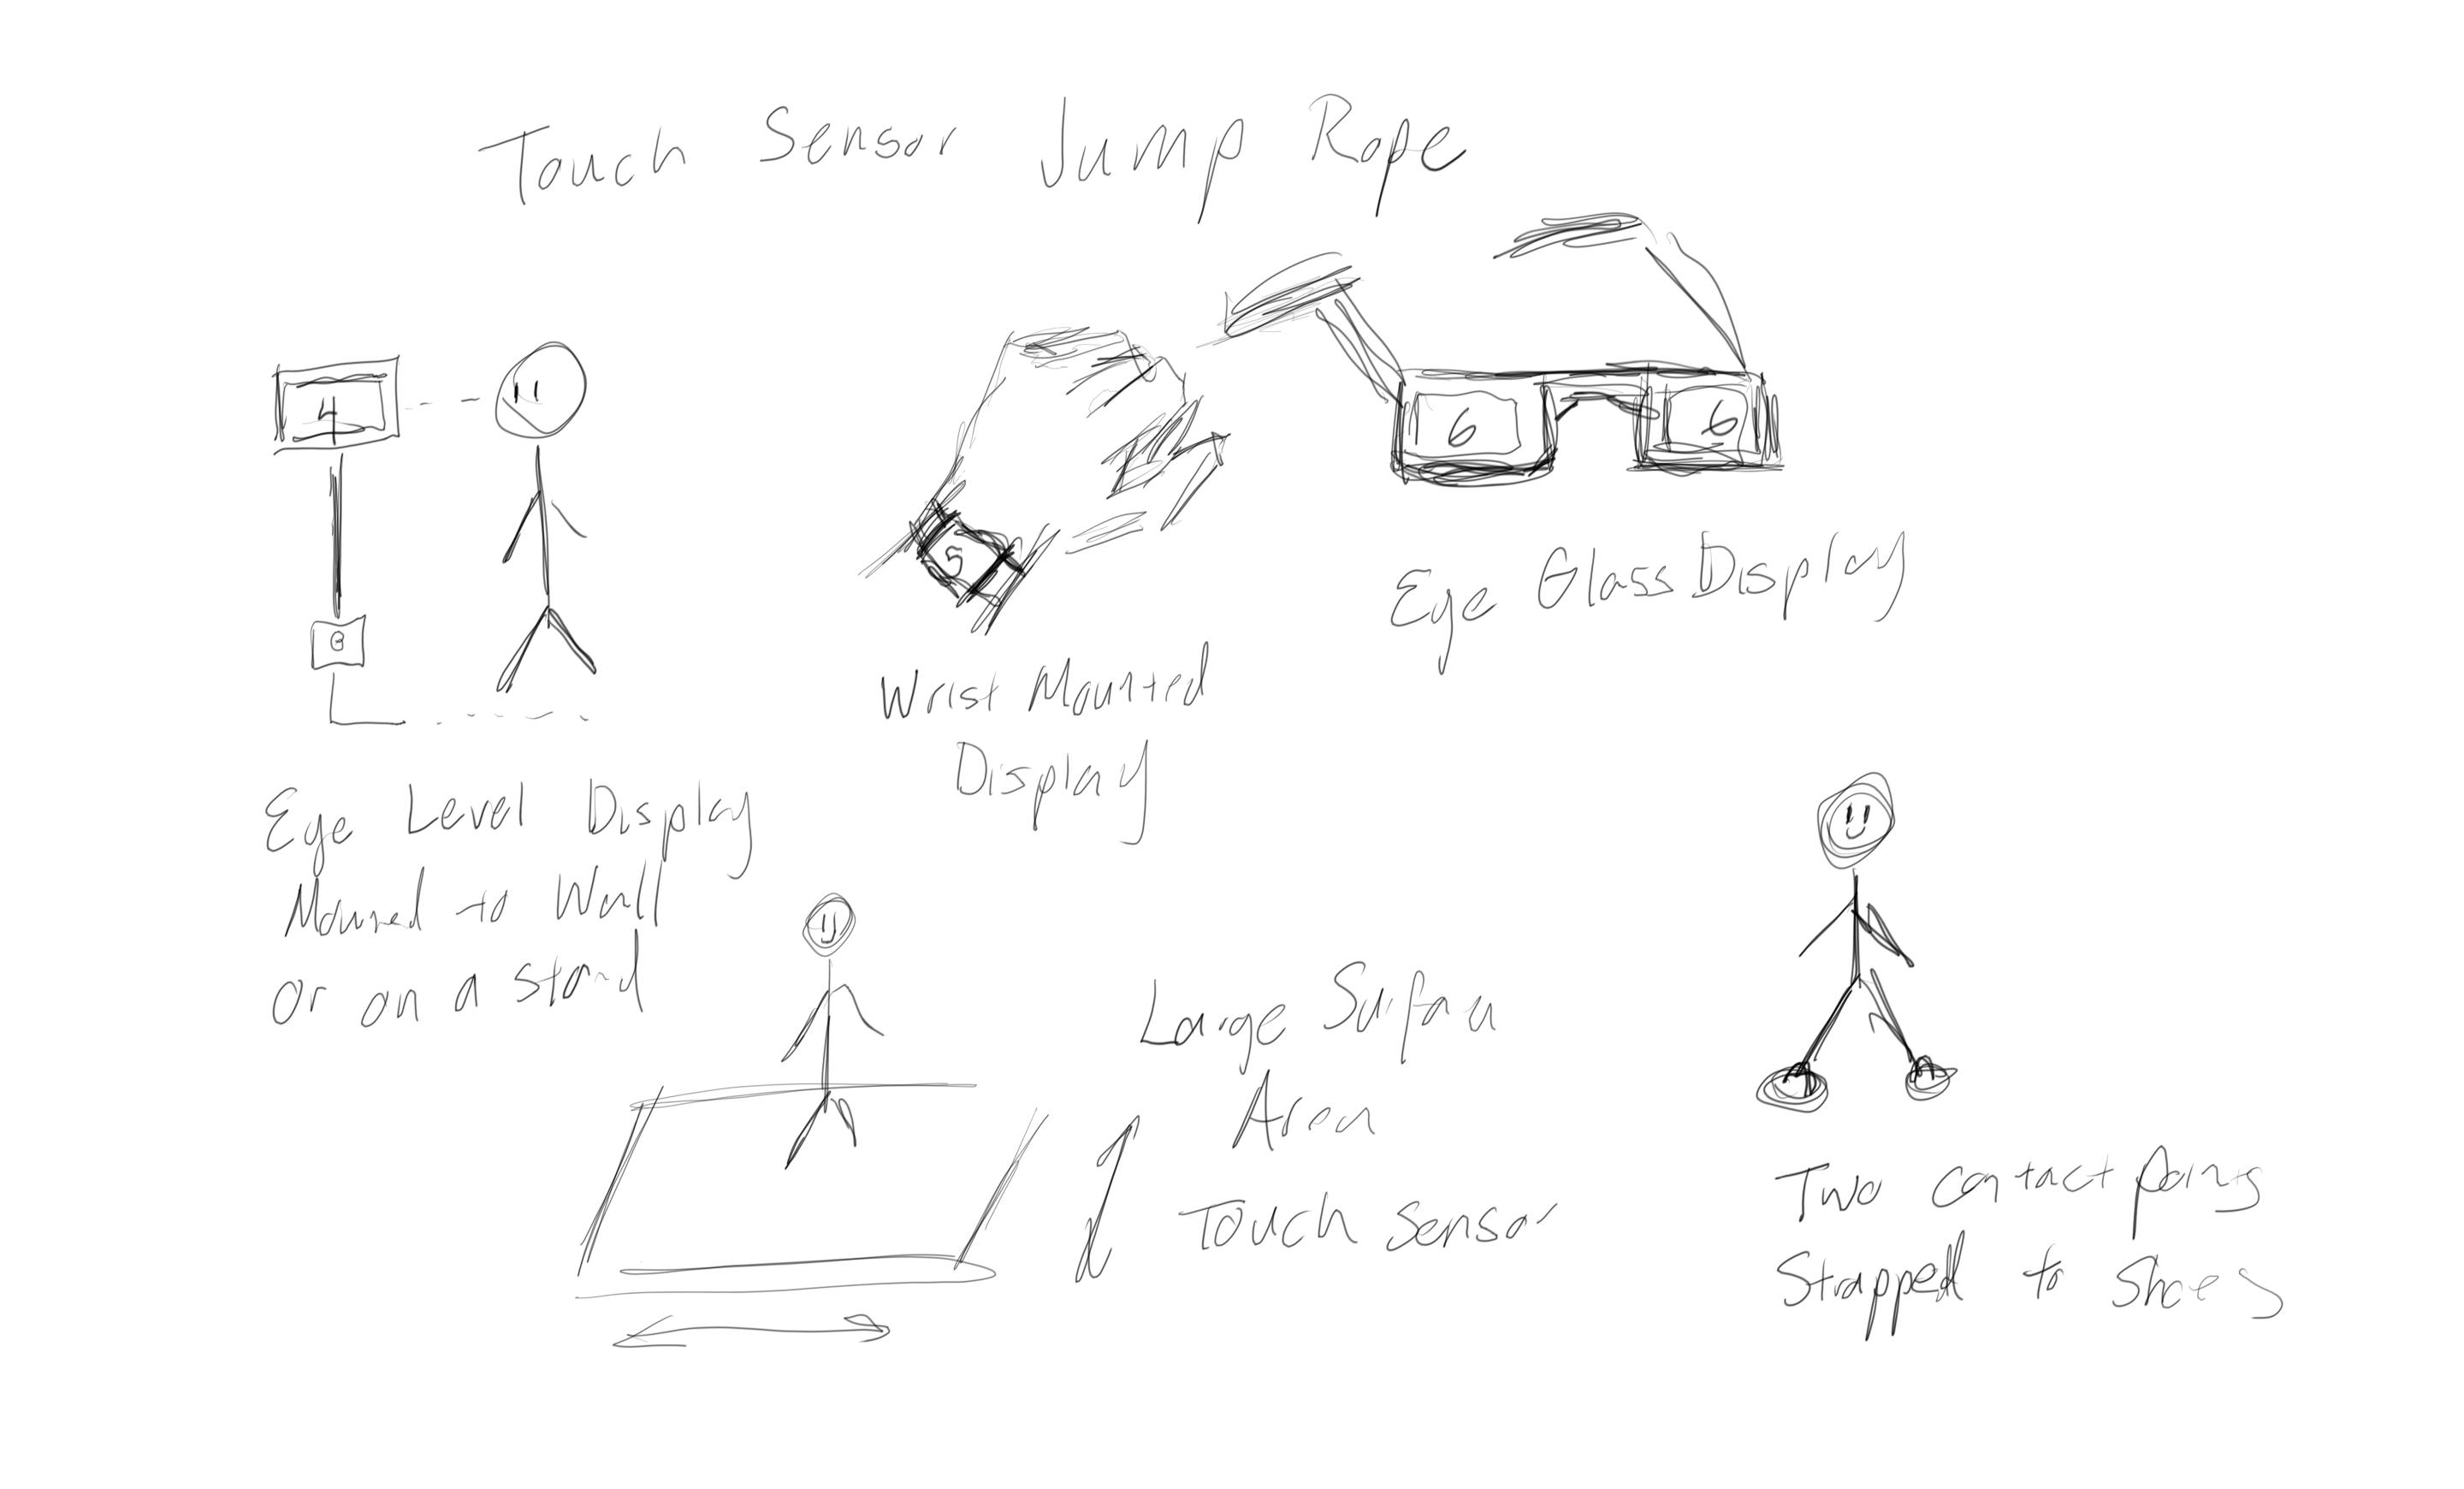 Touch Sensor Jump Rope
4
8
Eye Level Display
Mounted to Wall
or on a stand
5
Wrist Mounted
Display
6 6
Eye Glass Display
Large Surface
Area
Touch Sensor
Two contact points
Strapped to Shoes